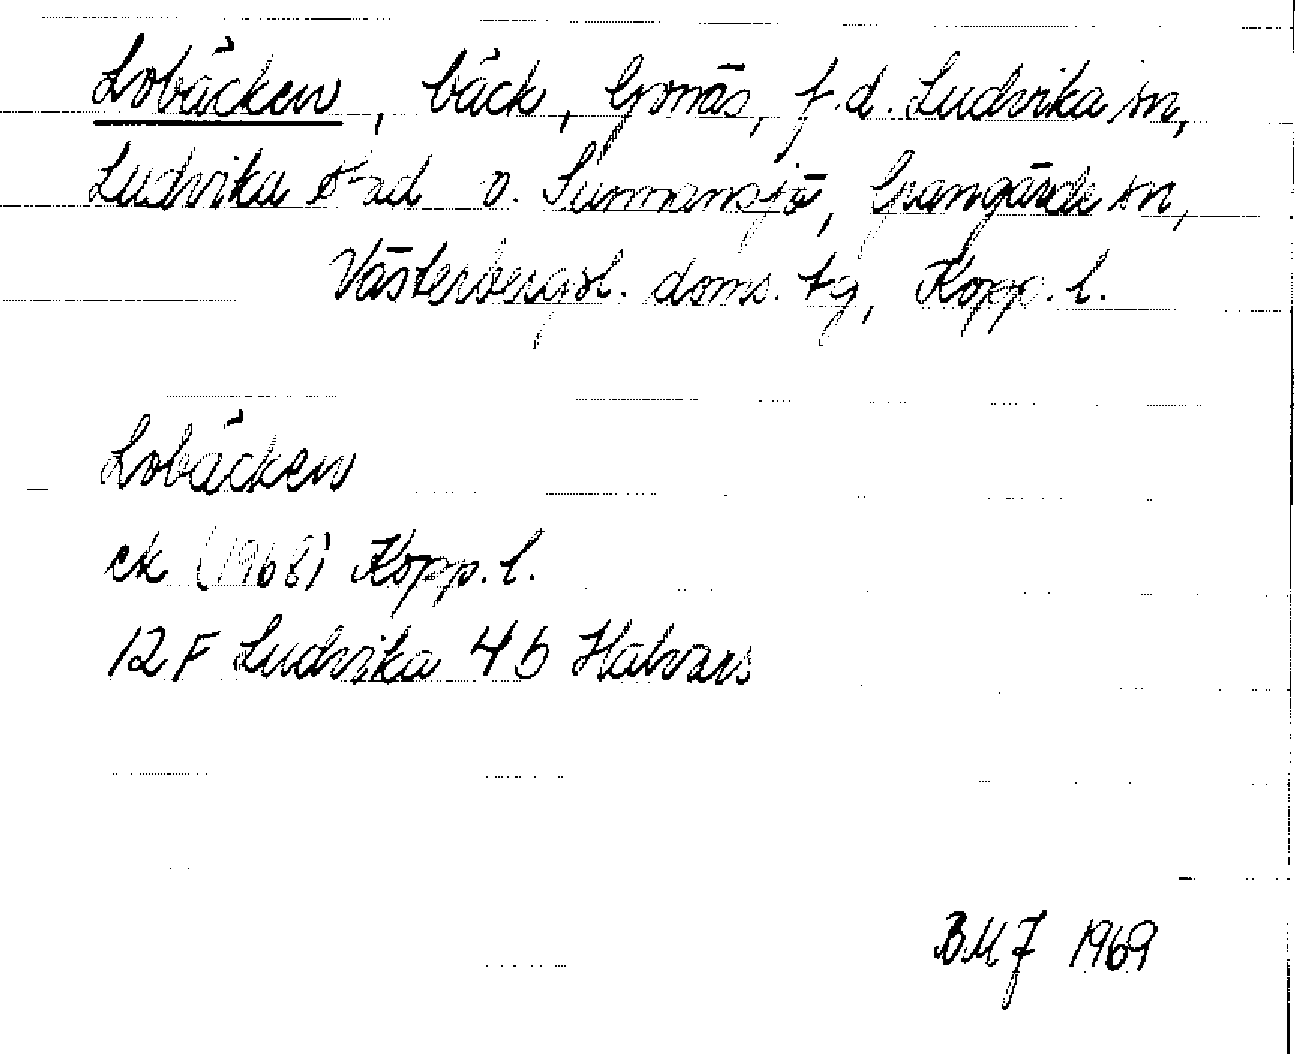 Lobäcken, bäck, Gonäs, f.d. Ludvika sn,
Ludvika stad o. Sunnansjö, Grangärde sn,
Västerbergsl. doms. tg, Kopp. l.
Lobäcken
ek (1968) Kopp. l.
12 F Ludvika 4 b Halvars
BMJ 1969